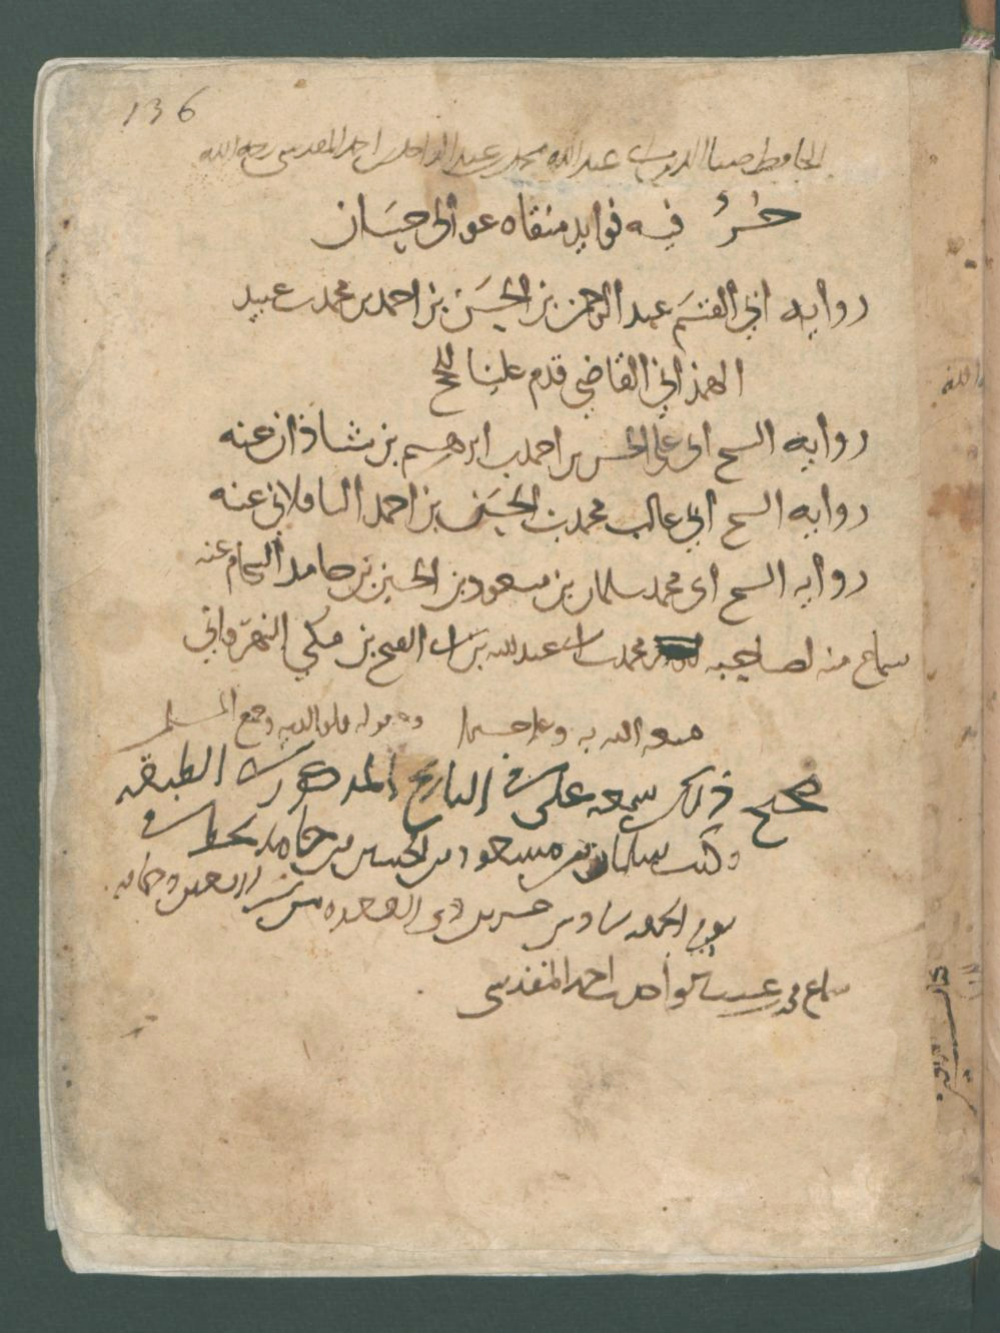 136
الحافظ ضيا الدين ابي عبد الله محمد بن عبد الواحد بن احمد المقدسي رحمه الله
جزء فيه فوايد منتقاه عوالي حسان
روايه ابي القسم عبد الرحمن بن الحسن بن احمد بن محمد بن عبيد
الهمذاني القاضي قدم علينا للحج
روايه الشيخ ابي علي الحسن بن احمد بن ابرهيم بن شاذان عنه
روايه الشيخ ابي غالب محمد بن الحسن بن احمد الباقلاني عنه
روايه الشيخ ابي محمد سلمان بن مسعود بن الحسين بن حامد الشحام عنه
سماع منه لصاحبه محمد بن ابي عبد الله بن ابي الفتح بن مكي النهرواني
نفعه الله به وجميع المسلمين
صحيح ذلك سمعه علي في التاريخ المذكور الطبقه
وكتب سلمان بن مسعود بن الحسين بن حامد بخطه في
يوم الجمعه سادس عشرين ذي القعده من سنه اربعين وخمسمايه
سماع محمد بن عبد الواحد بن احمد المقدسي